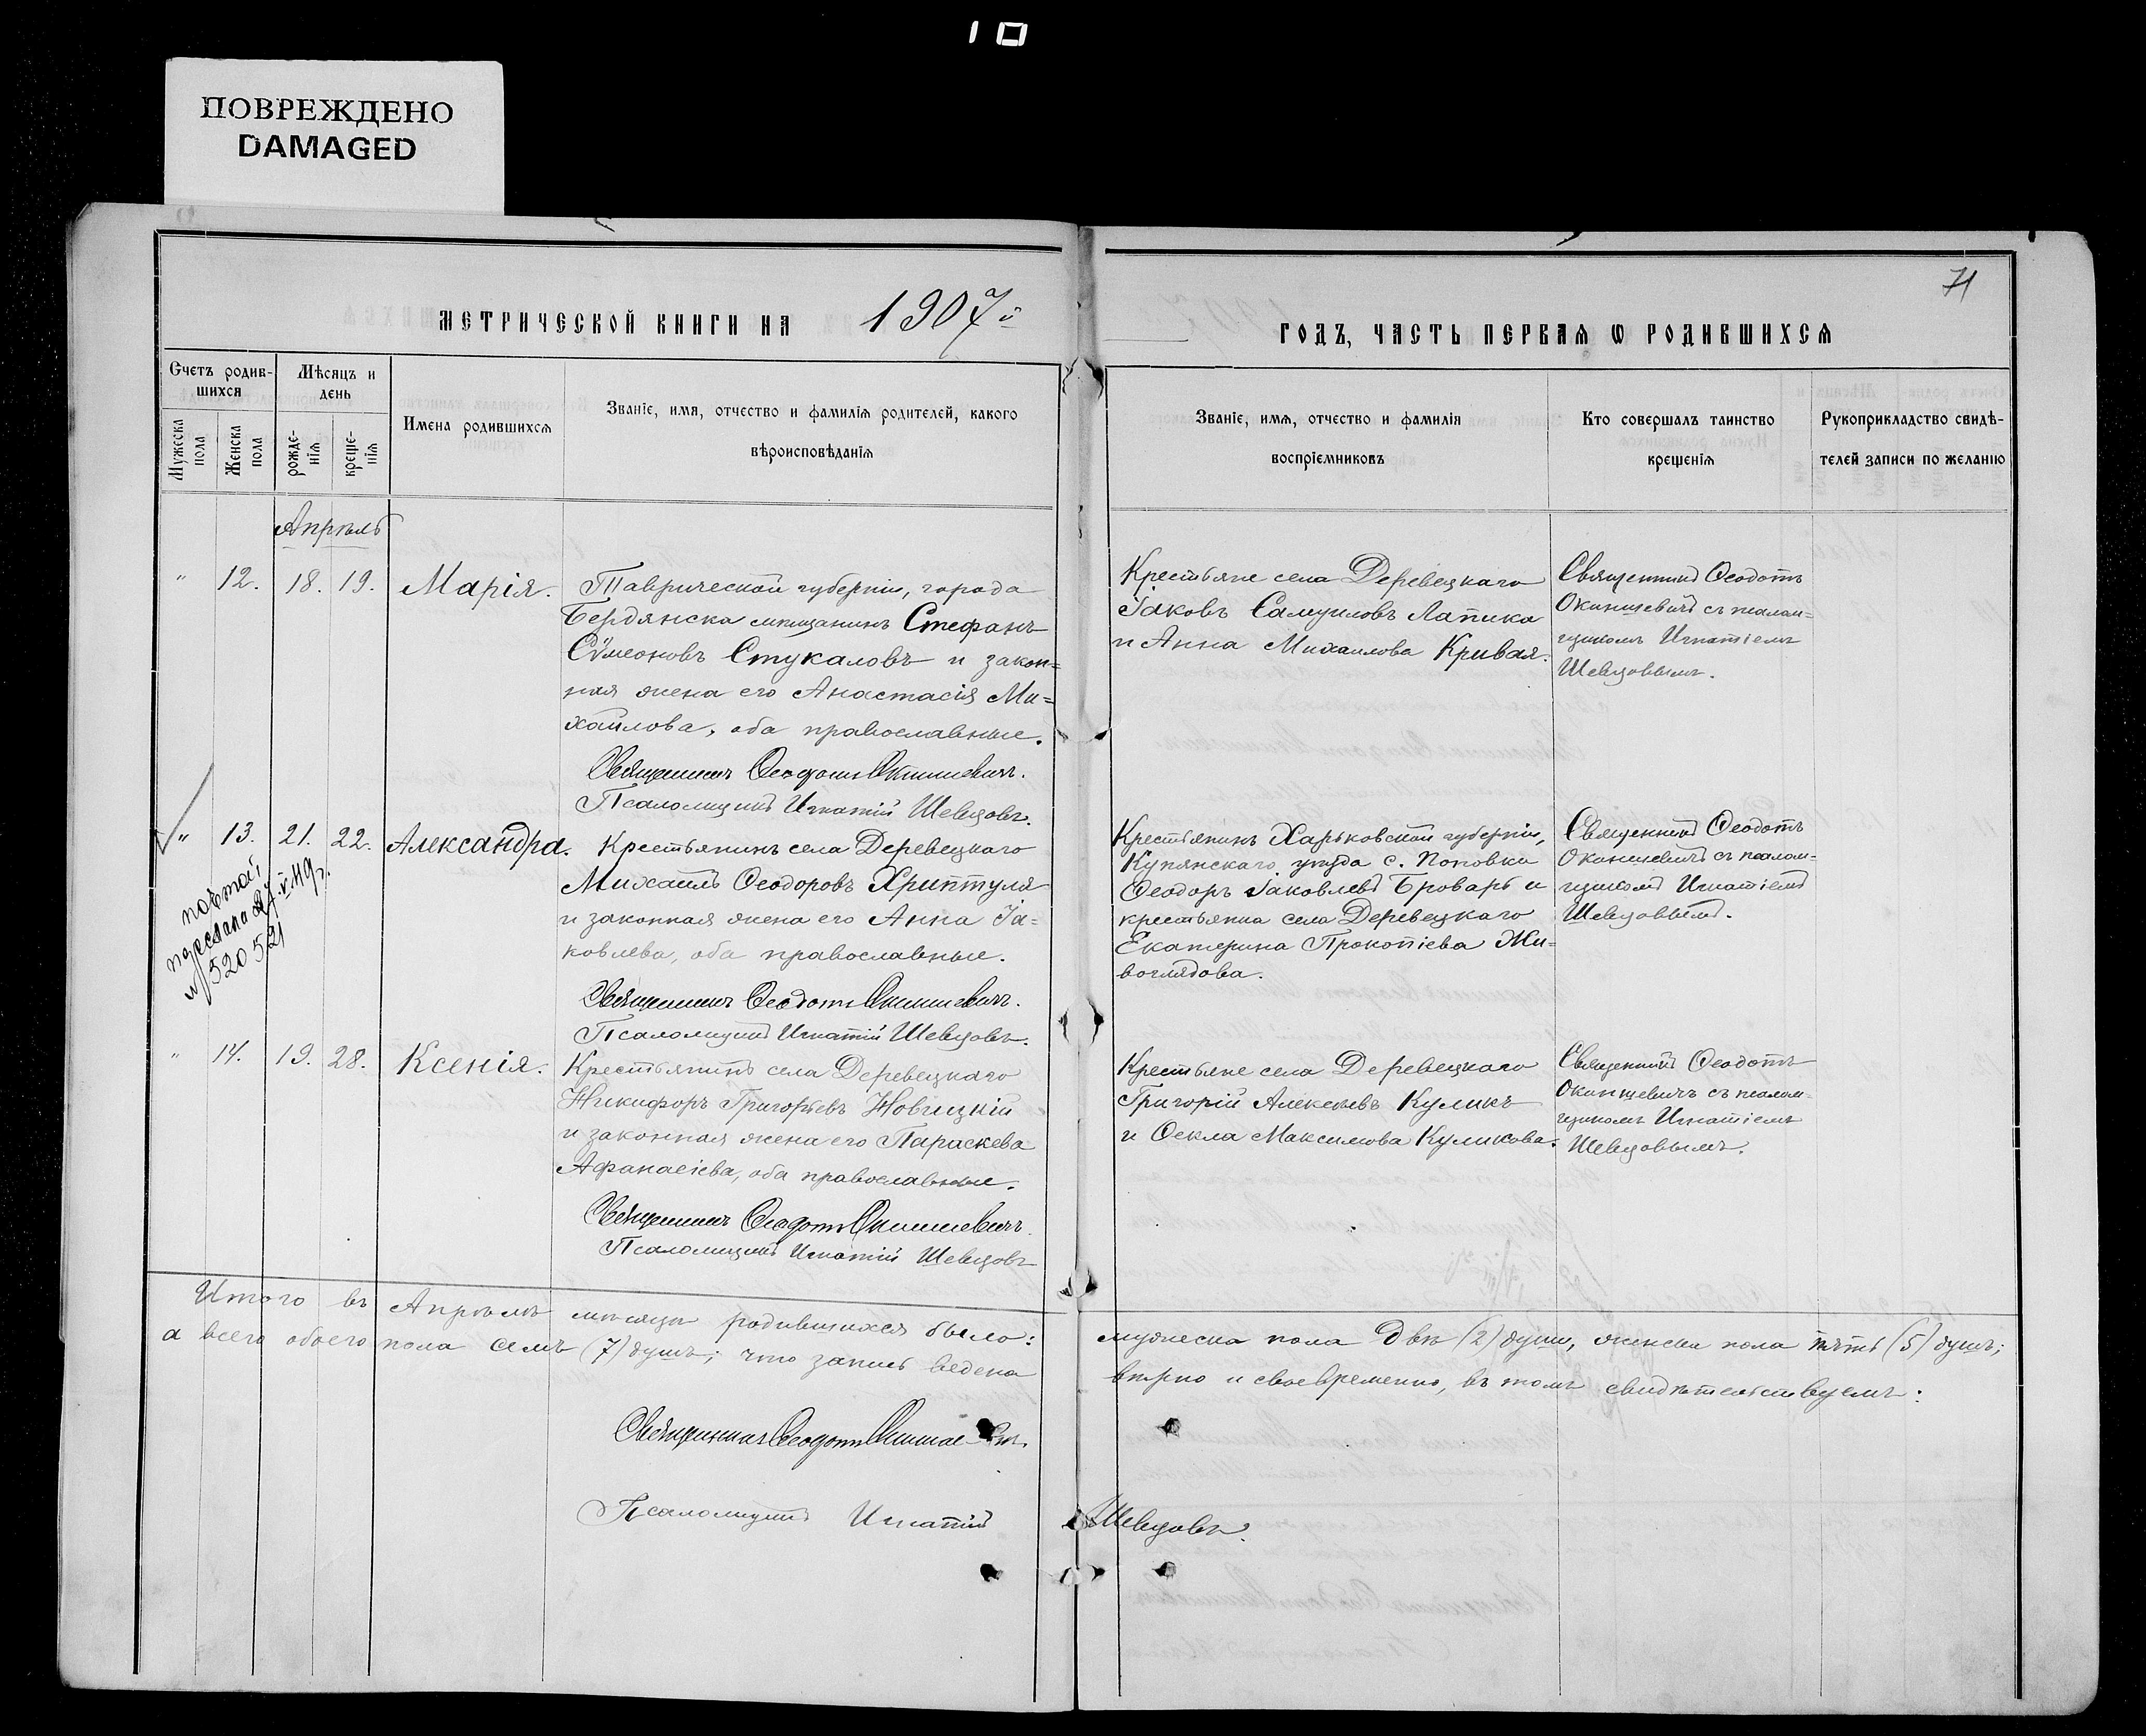 10
ПОВРЕЖДЕНО
DAMAGED
71
МЕТРИЧЕСКОЙ КНИГИ НА 1907й
ГОДЪ, ЧАСТЬ ПЕРВАЯ Ѡ РОДИВШИХСЯ
Счетъ родив-
шихся
Мѣсяцъ и
день
Мужеска
пола
Женска
пола
рожде-
нія
креще-
нія
Имена родившихся
Званіе, имя, отчество и фамилія родителей, какого
вѣроисповѣданія
Званіе, имя, отчество и фамилія
воспріемниковъ
Кто совершалъ таинство
крещенія
Рукоприкладство свидѣ-
телей записи по желанію
Апрѣль
" 12. 18. 19. Марія.
Таврической губерніи, города
Бердянска мѣщанинъ Стефанъ
Сѵмеоновъ Стукаловъ и закон=
ная жена его Анастасія Ми=
хайлова, оба православные.
Священникъ Ѳеодотъ Окиншевичъ.
Псаломщикъ Игнатій Шевцовъ.
Крестьяне села Деревецкаго
Іаковъ Самуиловъ Лапика
и Анна Михаилова Кривая.
Священникъ Ѳеодотъ
Окиншевичъ съ псалом=
щикомъ Игнатіемъ
Шевцовымъ.
" 13. 21. 22. Александра.
почтой
24.V.19
№ 520521
Крестьянинъ села Деревецкаго
Михаилъ Ѳеодоровъ Хриптуля
и законная жена его Анна Іа=
ковлева, оба православные.
Священникъ Ѳеодотъ Окиншевичъ.
Псаломщикъ Игнатій Шевцовъ.
Крестьянинъ Харьковской губерніи,
Купянскаго уѣзда с. Поповки
Ѳеодоръ Іаковлевъ Броварь и
крестьянка села Деревецкаго
Екатерина Прокопіева Жи=
воглядова.
Священникъ Ѳеодотъ
Окиншевичъ съ псалом=
щикомъ Игнатіемъ
Шевцовымъ.
" 14. 19. 28. Ксенія.
Крестьянинъ села Деревецкаго
Никифоръ Григорьевъ Новицкій
и законная жена его Параскева
Афанасіева, оба православные.
Священникъ Ѳеодотъ Окиншевичъ.
Псаломщикъ Игнатій Шевцовъ
Крестьяне села Деревецкаго
Григорій Алексѣевъ Куликъ
и Ѳекла Максимова Куликова.
Священникъ Ѳеодотъ
Окиншевичъ съ псалом=
щикомъ Игнатіемъ
Шевцовымъ.
Итого въ Апрѣлѣ мѣсяцѣ родившихся было: мужеска пола двѣ (2) души, женска пола пять (5) душъ;
а всего обоего пола семь (7) душъ; что запись ведена вѣрно и своевременно, въ томъ свидѣтельствуемъ:
Священникъ Ѳеодотъ Окиншевичъ.
Псаломщикъ Игнатій Шевцовъ.